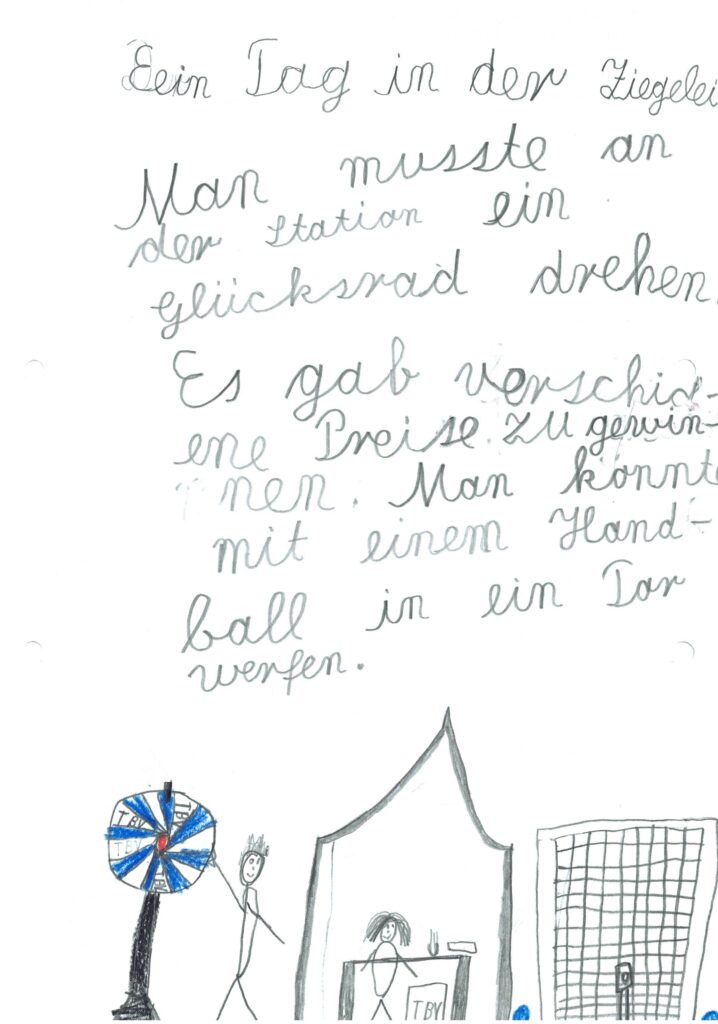 Eein Tag in der Ziegelei
Man musste an
der Station ein
Glücksrad drehen.
Es gab verschid-
ene Preise zu gewin-
nen. Man konnte
mit einem Hand-
ball in ein Tor
werfen.
TBV
TBV
TBV
TBV